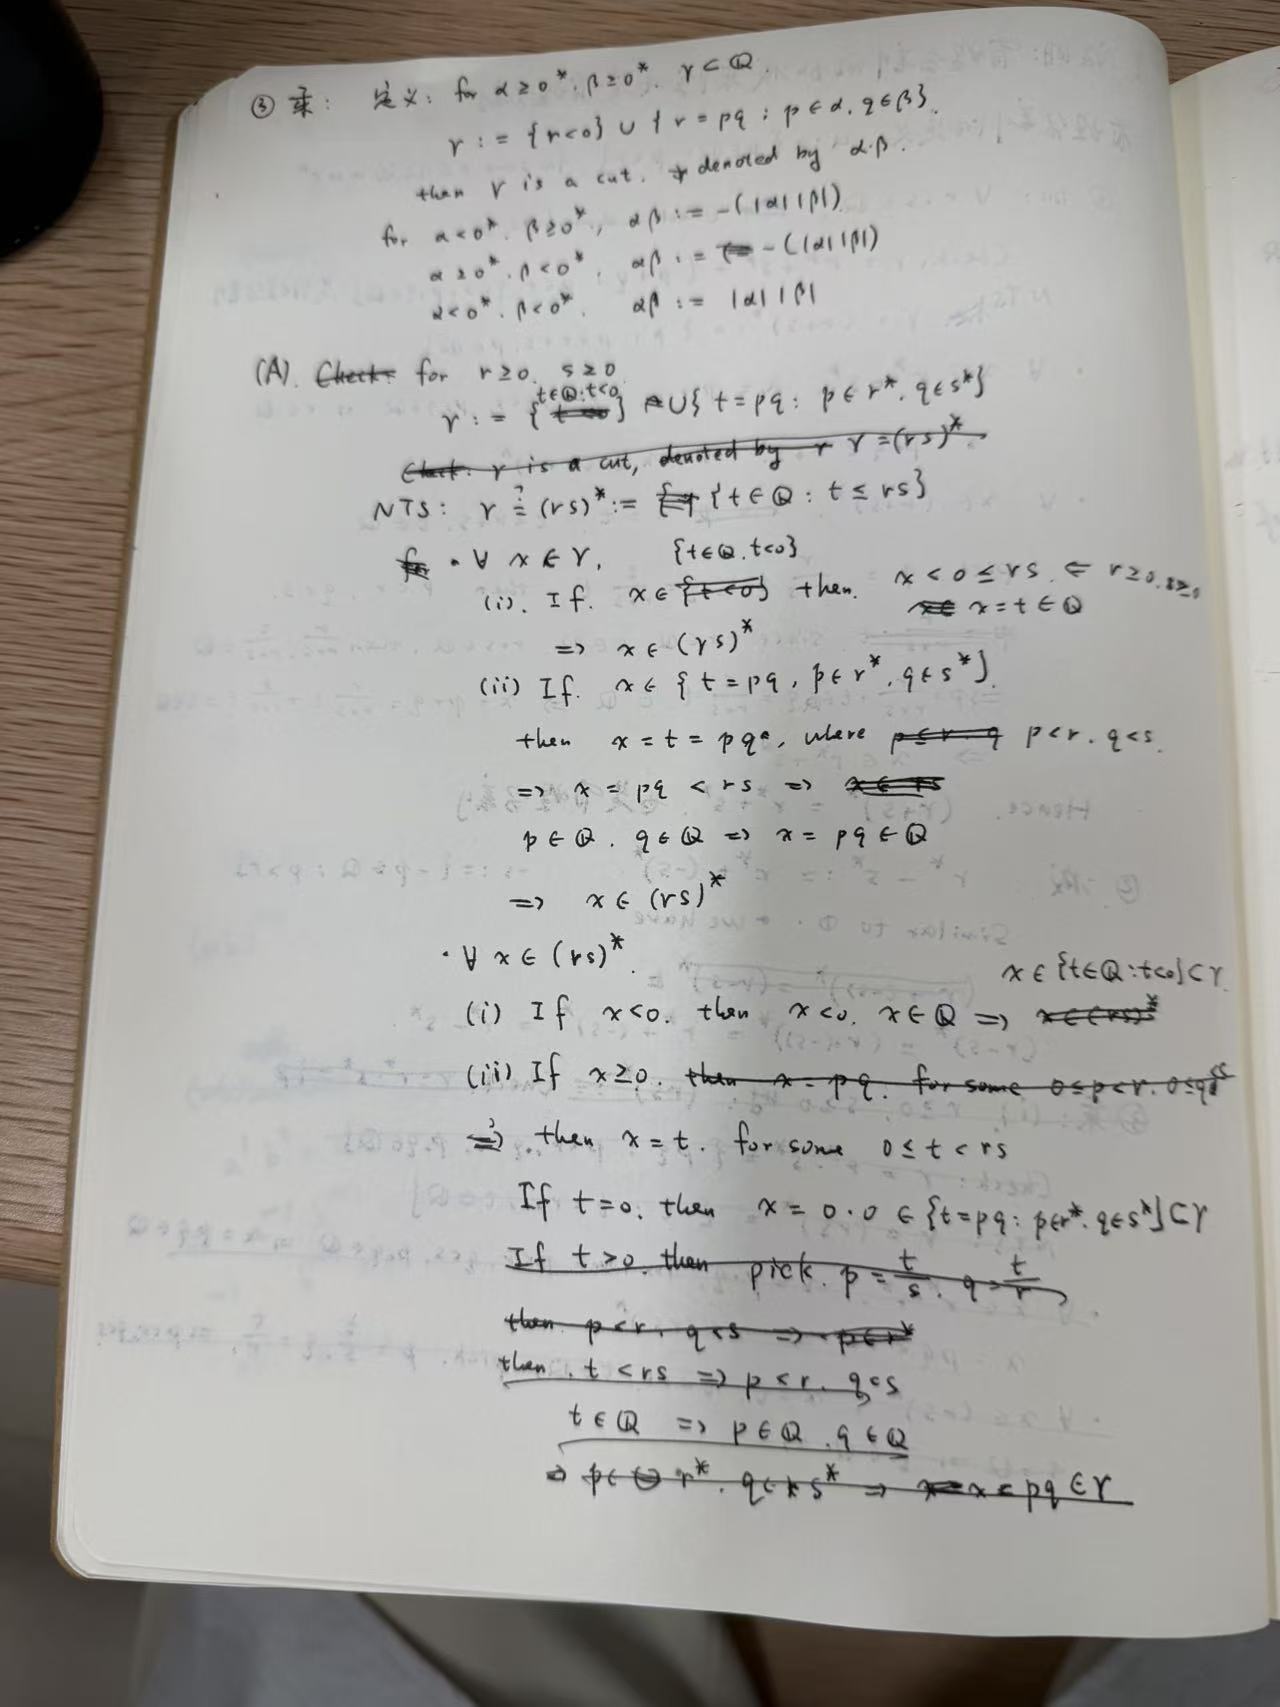 ③ 乘: 定义: for α ≥ 0*, β ≥ 0*. γ ⊂ ℚ.
γ := {r<0} ∪ {r = pq : p ∈ α, q ∈ β}.
then γ is a cut. denoted by α·β.
for α < 0*. β ≥ 0*, αβ := -(|α||β|)
α ≥ 0*. β < 0*, αβ := -(|α||β|)
α < 0*. β < 0*. αβ := |α||β|
(A). Check: for r ≥ 0. s ≥ 0
t∈ℚ: t<0
γ := { t<0 } ∪ { t = pq : p ∈ r*. q ∈ s* }
Check: γ is a cut, denoted by γ = (rs)*
NTS: γ ≟ (rs)* := { t ∈ ℚ : t ≤ rs }
· ∀ x ∈ γ, {t∈ℚ. t<0}
(i). If. x ∈ {t<0} then. x < 0 ≤ rs. ⇐ r≥0. s≥0
x = t ∈ ℚ
⇒ x ∈ (rs)*
(ii) If. x ∈ { t = pq, p ∈ r*. q ∈ s* }.
then x = t = pq, where p<r. q p<r. q<s.
⇒ x = pq < rs ⇒ x ∈ rs
p ∈ ℚ. q ∈ ℚ ⇒ x = pq ∈ ℚ
⇒ x ∈ (rs)*
· ∀ x ∈ (rs)*.
x ∈ {t∈ℚ: t<0} ⊂ γ
(i) If x<0. then x<0. x ∈ ℚ ⇒ x ∈ (rs)*
(ii) If x ≥ 0. then x = pq. for some 0≤p<r. 0≤q<s
⇒ then x = t. for some 0 ≤ t < rs
If t=0. then x = 0·0 ∈ {t=pq: p∈r*. q∈s*} ⊂ γ
If t>0. then pick. p = t/s. q = t/r
then. p<r. q<s ⇒ p∈r*
then. t < rs ⇒ p<r. q<s
t ∈ ℚ ⇒ p ∈ ℚ. q ∈ ℚ
⇒ p ∈ r*. q ∈ s* ⇒ x = pq ∈ γ